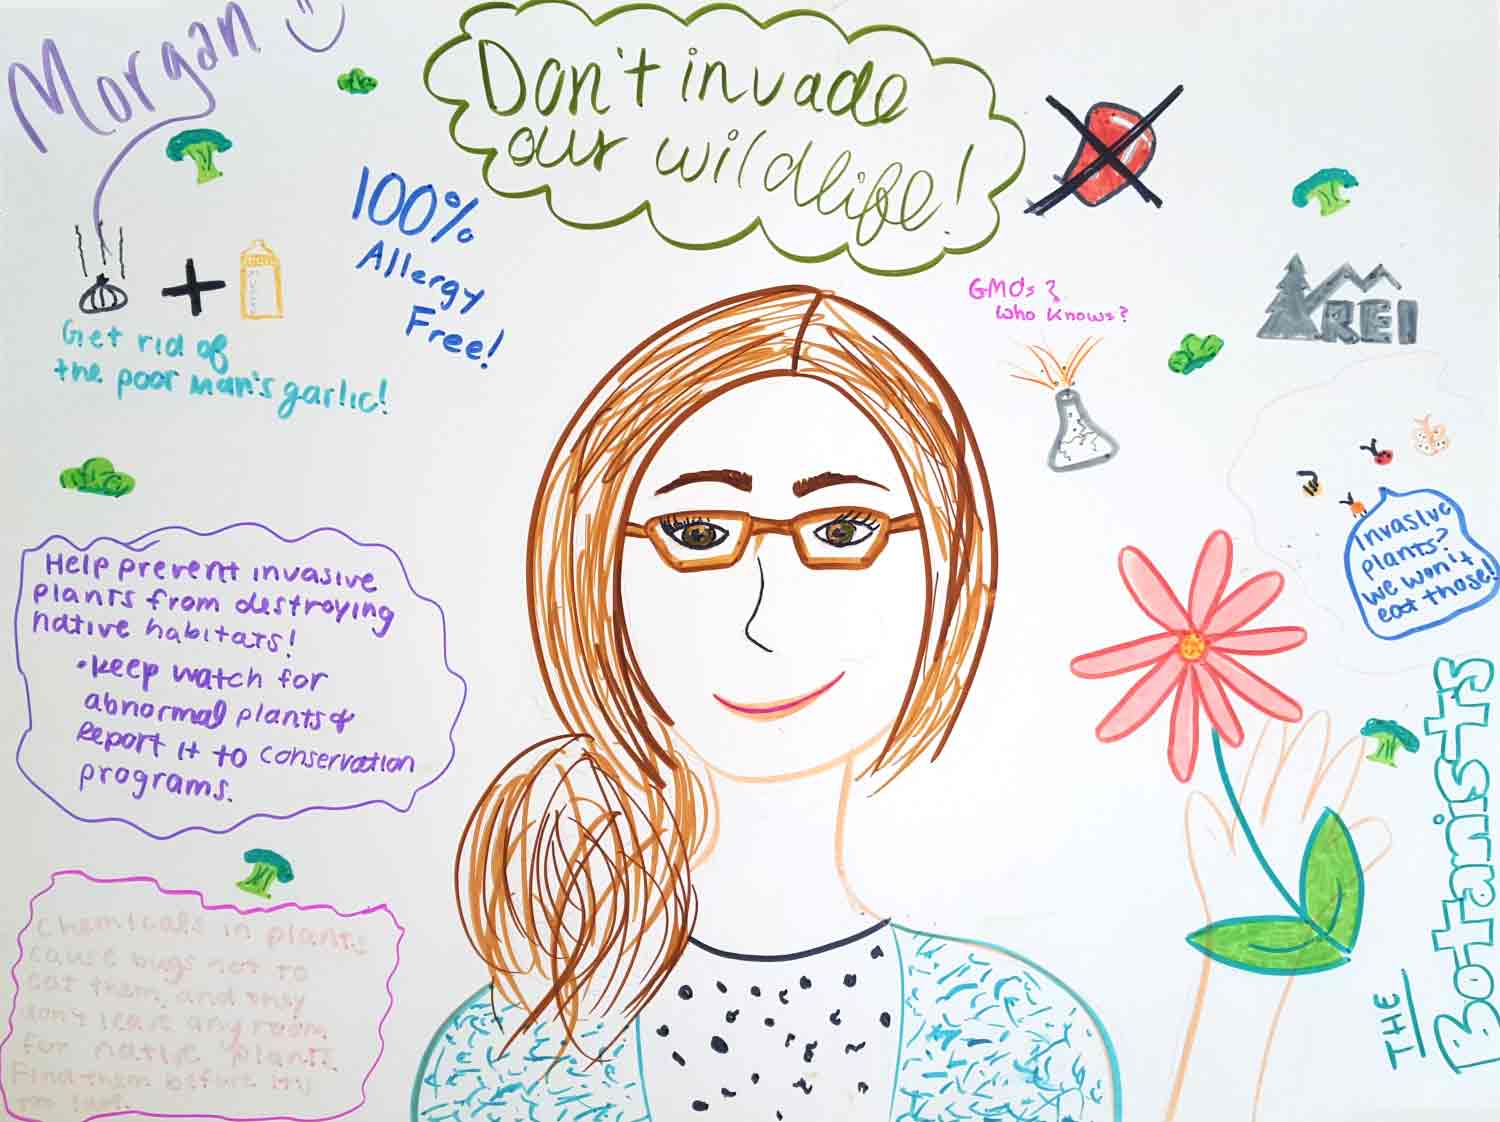 Morgan
Don't invade
our wildlife!
100%
Allergy
Free!
Get rid of
the poor man's garlic!
GMOs?
Who Knows?
REI
Invasive
plants?
we won't
eat those!
Help prevent invasive
plants from destroying
native habitats!
• Keep watch for
abnormal plants &
Report it to conservation
programs.
Chemicals in plants
cause bugs not to
eat them, and they
don't leave any room
for native plants.
Find them before it's
too late.
THE
Botanists